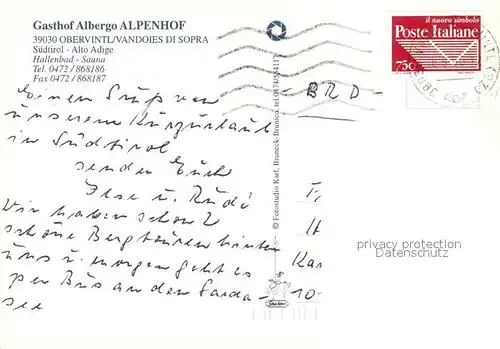 Gasthof Albergo ALPENHOF
39030 OBERVINTL/VANDOIES DI SOPRA
Südtirol - Alto Adige
Hallenbad - Sauna
Tel. 0472 / 868186
Fax 0472 / 868187
il nuovo simbolo
Poste Italiane
750
- BRD -
Einen Gruß von
unserem Kurzurlaub
in Südtirol
senden Euch
Ilse u. Rudi
Wir haben schon 2
schöne Bergtouren hinter
uns u. morgen geht es
per Bus an den Garda-
see
© Fotostudio Karl, Bruneck-Brunico, tel.
Kar
10-
privacy protection
Datenschutz